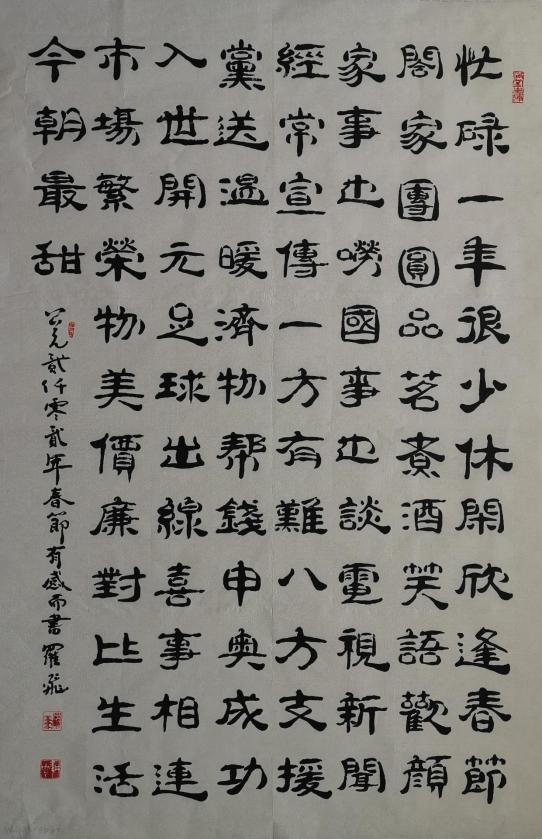 忙碌一年很少休閑欣逢春節
閤家團圓品茗煮酒笑語歡顔
家事也嘮國事也談電視新聞
經常宣傳一方有難八方支援
黨送温暖濟物帮錢申奥成功
入世開元足球出線喜事相連
市場繁榮物美價廉對比生活
今朝最甜
公元貳仟零貳年春節有感而書羅飛